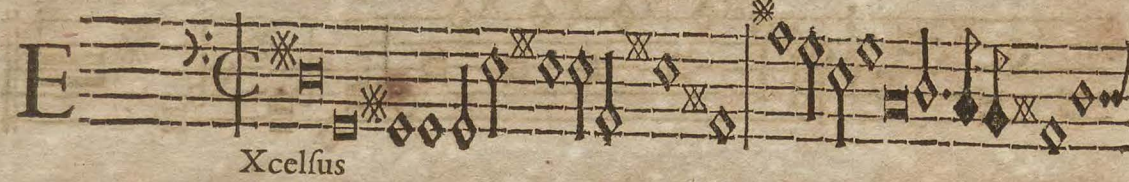 E
Xcelſus